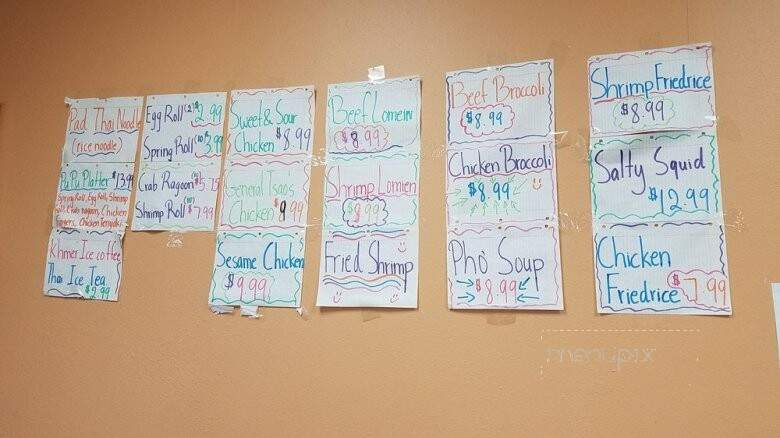 Pad Thai Noodle
(rice noodle)
PuPu Platter $13.99
Spring Roll, Egg Roll, Shrimp
Roll, Crab ragoon, Chicken
Fingers, Chicken Teriyaki
Khmer Ice coffee
Thai Ice Tea
$2.99
Egg Roll (2) $2.99
Spring Roll
Crab Ragoon $5.75
Shrimp Roll $7.99
Sweet & Sour
Chicken $8.99
General Tsao's
Chicken $9.99
Sesame Chicken
$9.99
Beef Lomein
$8.99
Shrimp Lomien
Fried Shrimp
Beef Broccoli
$8.99
Chicken Broccoli
$8.99
Pho Soup
$8.99
Shrimp Friedrice
$8.99
Salty Squid
$12.99
Chicken
Friedrice $7.99
menupix